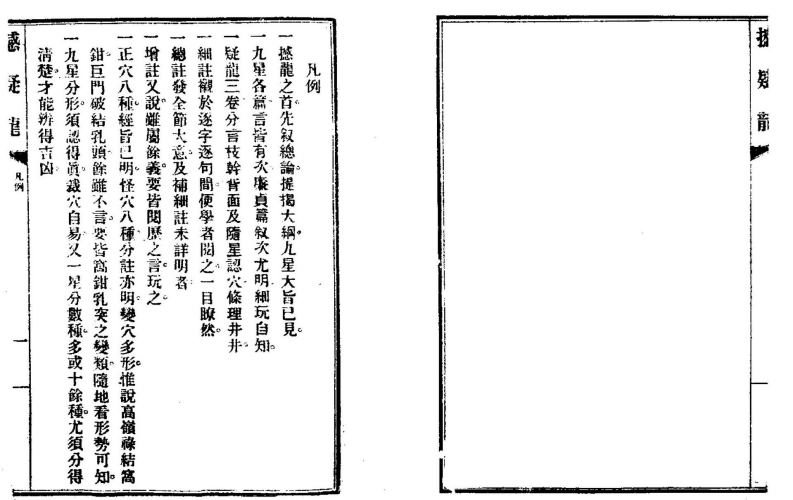 撼疑龍
凡例
一撼龍之首先叙總論提揭大綱九星大旨已見。
一九星各篇言皆有次廉貞篇叙次尤明細玩自知。
一疑龍三卷分言枝幹背面及隨星認穴條理井井。
一細註襯於逐字逐句間便學者閱之一目瞭然。
一總註發全節大意及補細註未詳明者
一增註又說雖屬餘義要皆閱歷之言玩之
一正穴八種。經旨已明。怪穴八種分註亦明。變穴多形。惟說高嶺祿結窩
鉗。巨門破結乳頭。餘雖不言。要皆窩鉗乳突之變類。隨地看形勢可知。
一九星分形。須認得眞。裁穴自易。又一星分數種。多或十餘種。尤須分得
清楚。才能辨得吉凶
撼疑龍
凡例
一